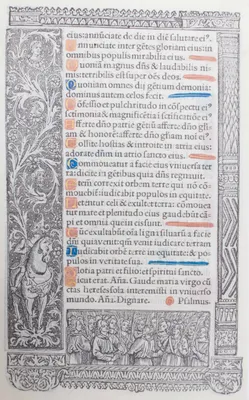 eius annūciate de die in diē salutare ei⁹.
Annunciate inter gētes gloriam eius: in
omnibus populis mirabilia eius.
Quoniā magnus dñs & laudabilis ni-
mis: terribilis est super oēs deos.
Quoniam omnes dij gentium demonia:
dominus autem celos fecit.
Cōfessio et pulchritudo in cōspectu ei⁹
sctimonia & magnificētia ī sctificatiōe ei⁹
Afferte dño patrie gētiū afferte dño glī-
am & honorē: afferte dño gliam noī ei⁹.
Tollite hostias & introite in atria eius:
adorate dñm in atrio sancto eius.
Cōmoueatur a facie eius vniuersa ter-
ra: dicite in gētibus quia dñs regnauit.
Etenim correxit orbem terre qui nō cō-
mouebit̄ iudicabit populos in equitate.
Letentur celi & exultet terra: cōmoueat̄
mare et plenitudo eius: gaudebūt cā-
pi et omnia que in eis sunt.
Tūc exultabūt oīa ligna siluarū a facie
dñi quia venit: qm̄ venit iudicare terram
Iudicabit orbē terre in equitate: & po-
pulos in veritate sua.
Gloria patri et filio: et spiritui sancto.
Sicut erat. Aña. Gaude maria virgo cū
ctas hereses sola interemisti in vniuerso
mundo. Aña. Dignare. Psalmus.